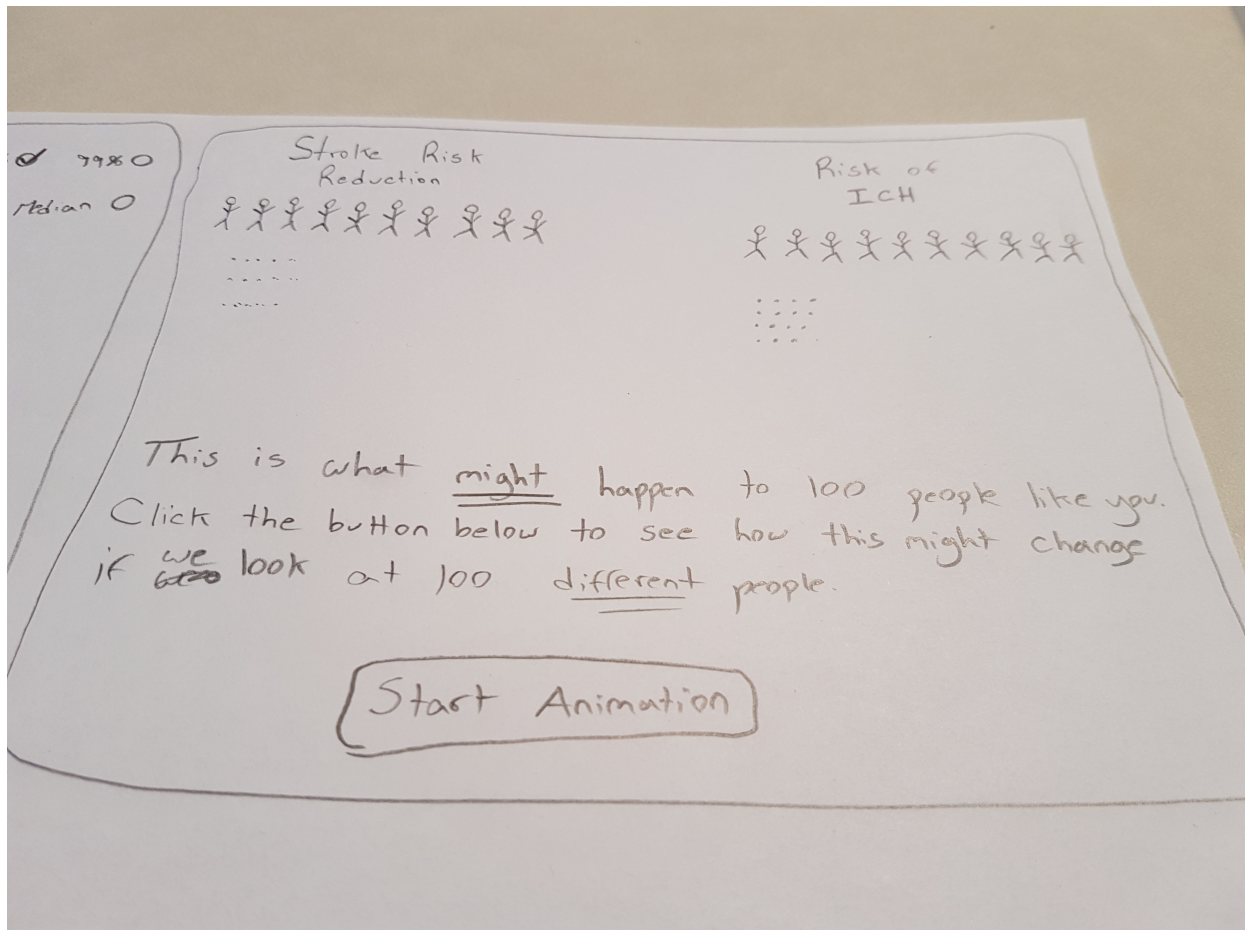 99% O
Median O
Stroke Risk
Reduction
Risk of
ICH
This is what might happen to 100 people like you.
Click the button below to see how this might change
if we look at 100 different people.
Start Animation